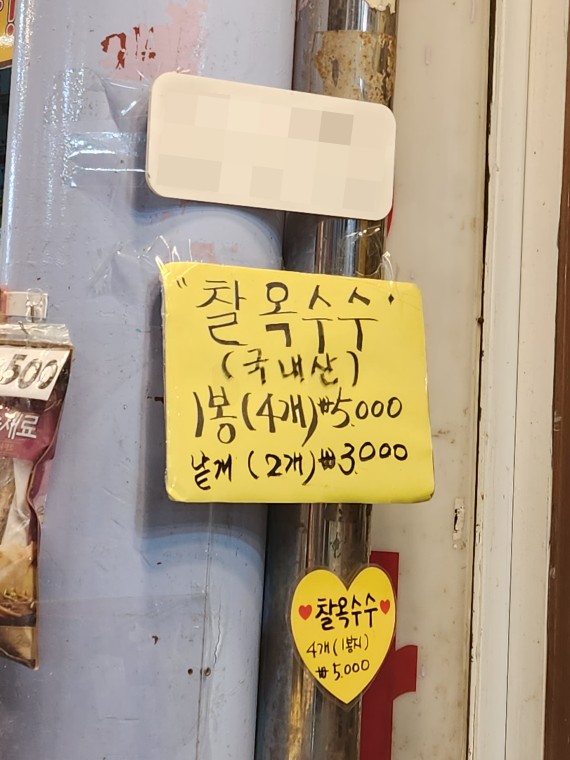 "찰옥수수"
(국내산)
1봉(4개)₩5.000
낱개 (2개)₩3000
500
찰옥수수
4개(1봉지)
₩5.000